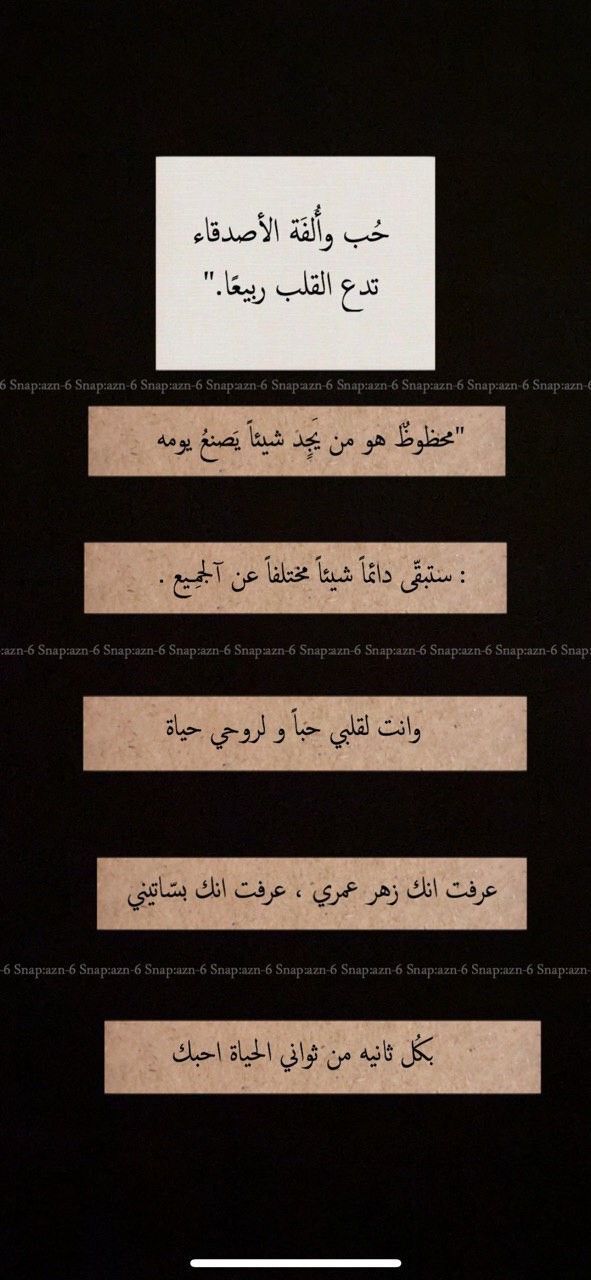 حُب وأُلفَة الأصدقاء
تدع القلب ربيعًا."
6 Snap:azn-6 Snap:azn-6 Snap:azn-6 Snap:azn-6 Snap:azn-6 Snap:azn-6 Snap:azn-6 Snap:azn-6 Snap:azn-6
"محظوظٌ هو من يَجِد شيئاً يَصنعُ يومه
: ستبقّى دائماً شيئاً مختلفاً عن آلجمِيع .
:azn-6 Snap:azn-6 Snap:azn-6 Snap:azn-6 Snap:azn-6 Snap:azn-6 Snap:azn-6 Snap:azn-6 Snap:azn-6 Snap:
وانت لقلبي حباً و لروحي حياة
عرفت انك زهر عمري ، عرفت انك بسّاتيني
-6 Snap:azn-6 Snap:azn-6 Snap:azn-6 Snap:azn-6 Snap:azn-6 Snap:azn-6 Snap:azn-6 Snap:azn-6 Snap:azn-
بكُل ثانيه من ثواني الحياة احبك